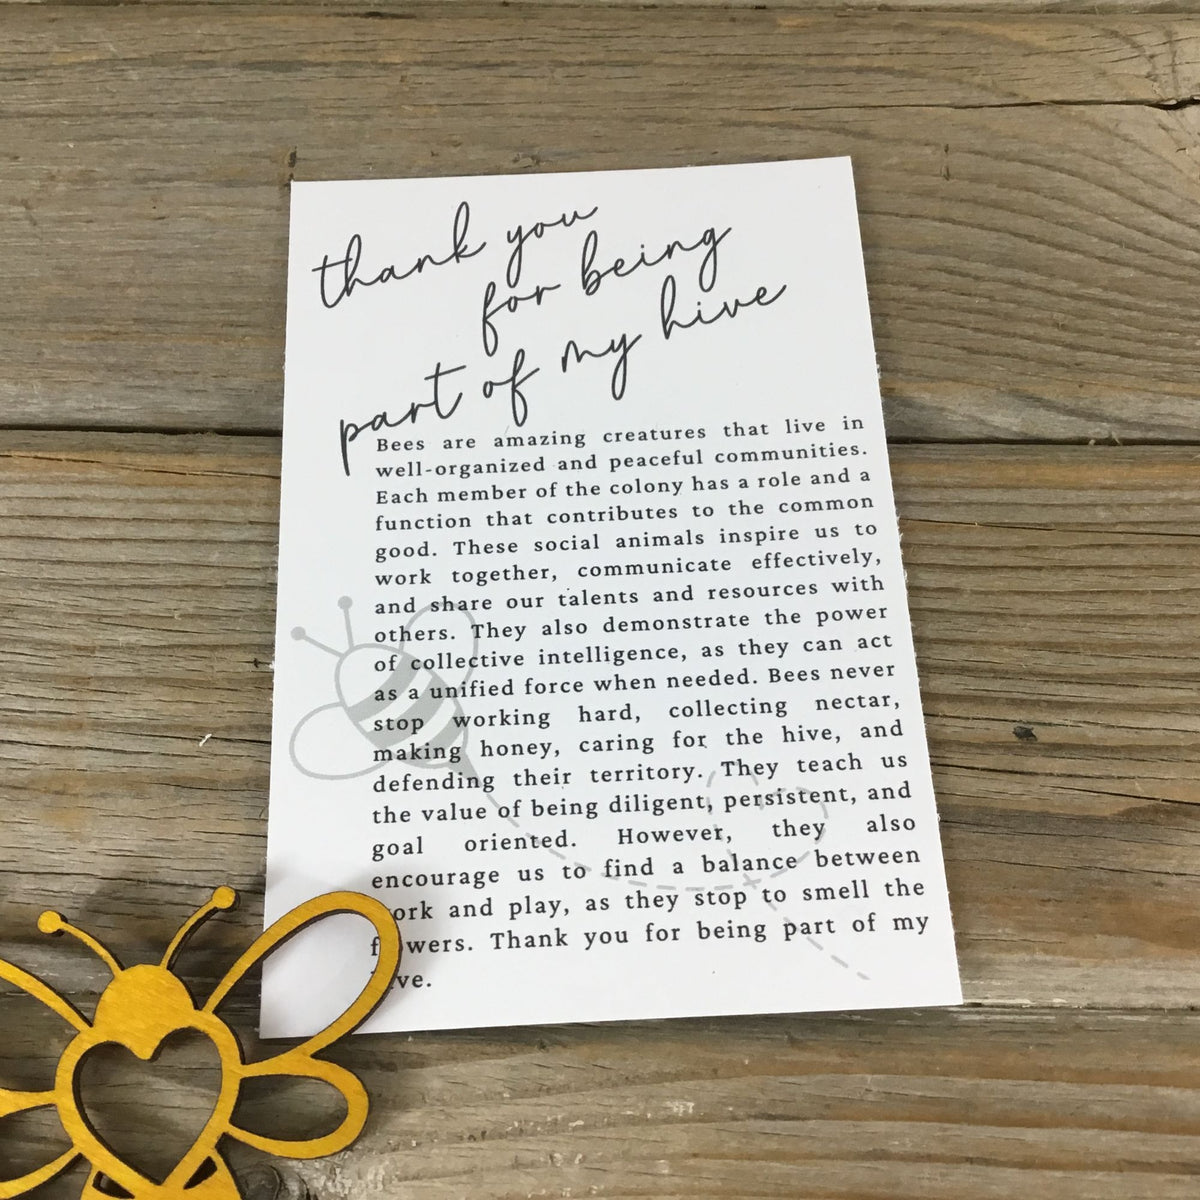 thank you
for being
part of my hive
Bees are amazing creatures that live in
well-organized and peaceful communities.
Each member of the colony has a role and a
function that contributes to the common
good. These social animals inspire us to
work together, communicate effectively,
and share our talents and resources with
others. They also demonstrate the power
of collective intelligence, as they can act
as a unified force when needed. Bees never
stop working hard, collecting nectar,
making honey, caring for the hive, and
defending their territory. They teach us
the value of being diligent, persistent, and
goal oriented. However, they also
encourage us to find a balance between
work and play, as they stop to smell the
flowers. Thank you for being part of my
hive.